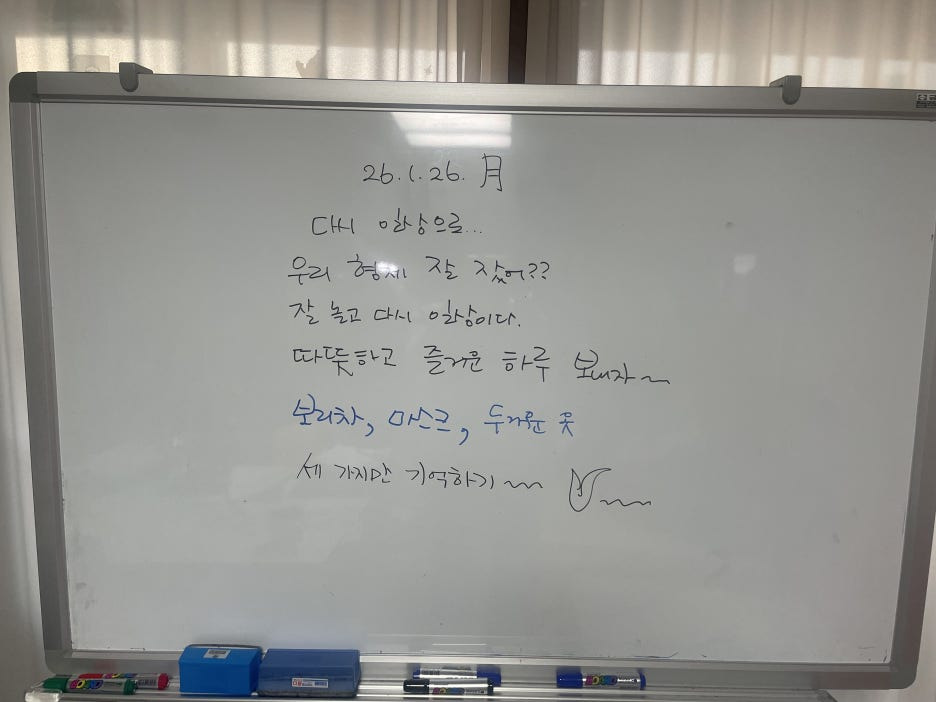 26.1.26. 月
다시 일상으로...
우리 형제 잘 잤어??
잘 놀고 다시 일상이다.
따뜻하고 즐거운 하루 보내자~
보리차, 마스크, 두꺼운 옷
세 가지만 기억하기~~